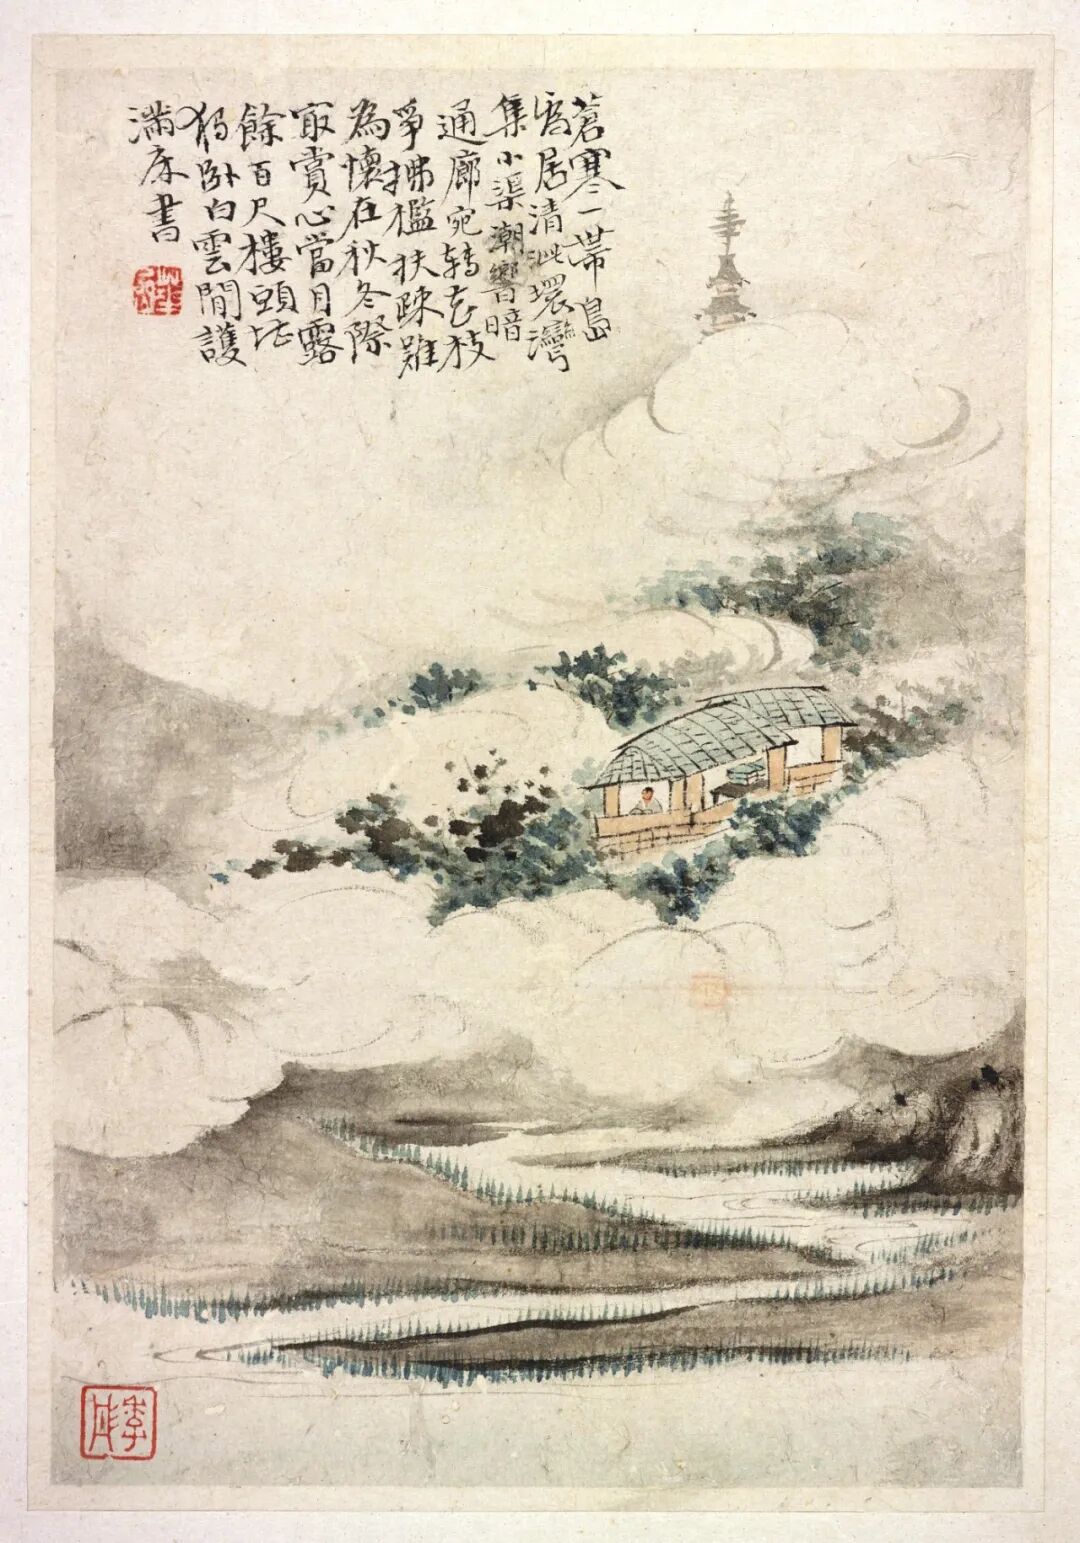 蒼寒一帶島
為居清泚環灣
集小渠潮響暗
通廊宛轉花枝
爭拂檻扶疎難
為懷在秋冬際
㝡賞心當月露
餘百尺樓頭堪
獨臥白雲閒護
滿床書